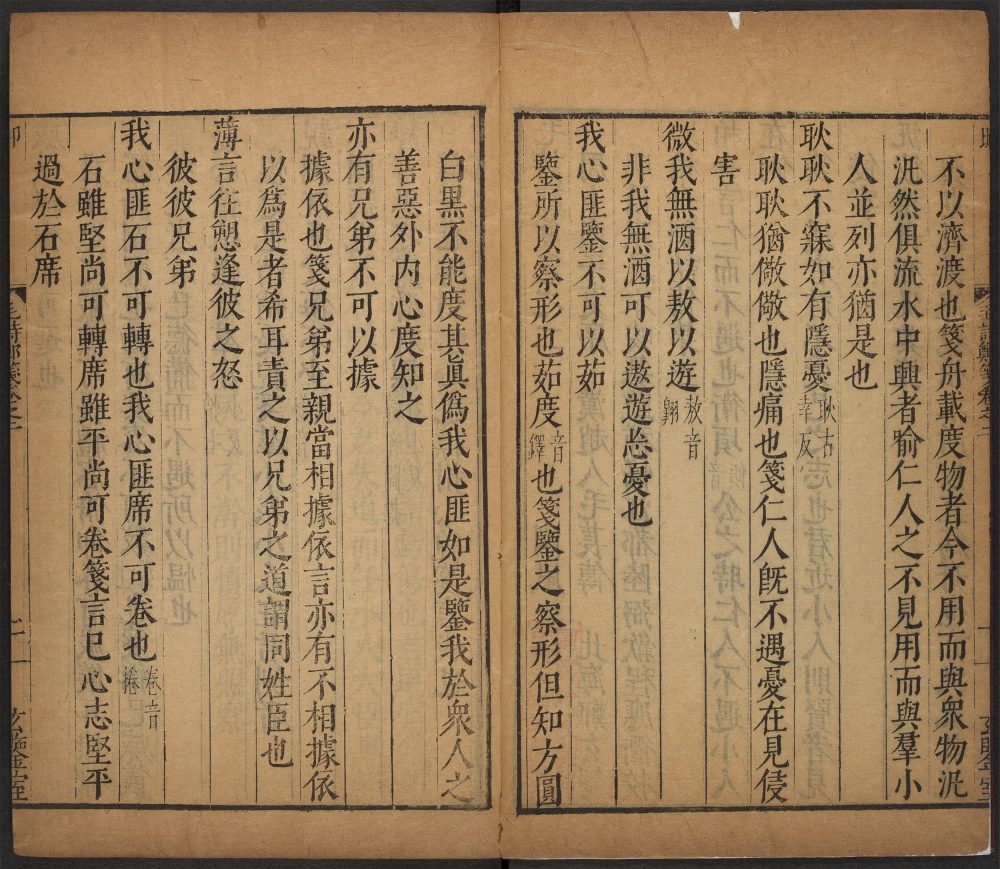 不以濟渡也箋舟載度物者今不用而與衆物汎
汎然俱流水中興者喻仁人之不見用而與羣小
人並列亦猶是也
耿耿不寐如有隱憂耿古幸反
耿耿猶儆儆也隱痛也箋仁人旣不遇憂在見侵
害
微我無酒以敖以遊敖音翺
非我無酒可以遨遊忘憂也
我心匪鑒不可以茹
鑒所以察形也茹度音鐸也箋鑒之察形但知方圓
白黒不能度其眞僞我心匪如是鑒我於衆人之
善惡外内心度知之
亦有兄弟不可以據
據依也箋兄弟至親當相據依言亦有不相據依
以爲是者希耳責之以兄弟之道謂同姓臣也
薄言往愬逢彼之怒
彼彼兄弟
我心匪石不可轉也我心匪席不可卷也卷音捲
石雖堅尚可轉席雖平尚可卷箋言巳心志堅平
過於石席
二
玄鑒室